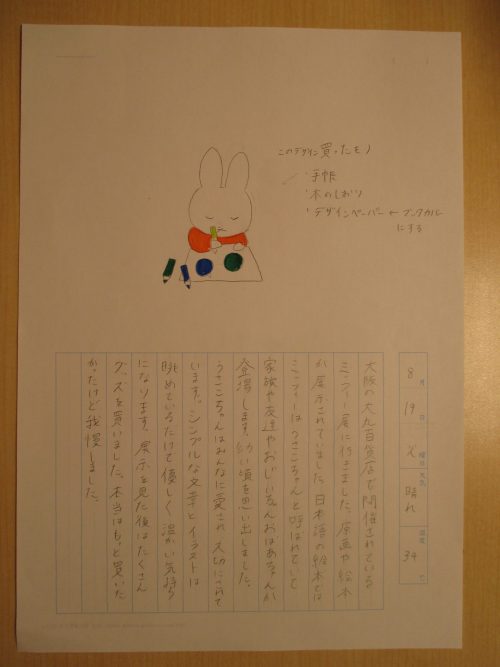 このデザイン買ったモノ
・手帳
・木のしおり
・デザインペーパー ← ブックカバー
にする
8月19日 火曜日 天気 晴れ 温度 34℃
大阪の大丸百貨店で開催されている
ミッフィー展に行きました。原画や絵本
が展示されていました。日本語の絵本では
ミッフィーはうさこちゃんと呼ばれていて
家族や友達やおじいちゃんおばあちゃんが
登場します。幼い頃を思い出しました。
うさこちゃんはみんなに愛され大切にされて
います。シンプルな文章とイラストは
眺めているだけで優しく温かい気持ち
になります。展示を見た後はたくさん
グッズを買いました。本当はもっと買いた
かったけど我慢しました。